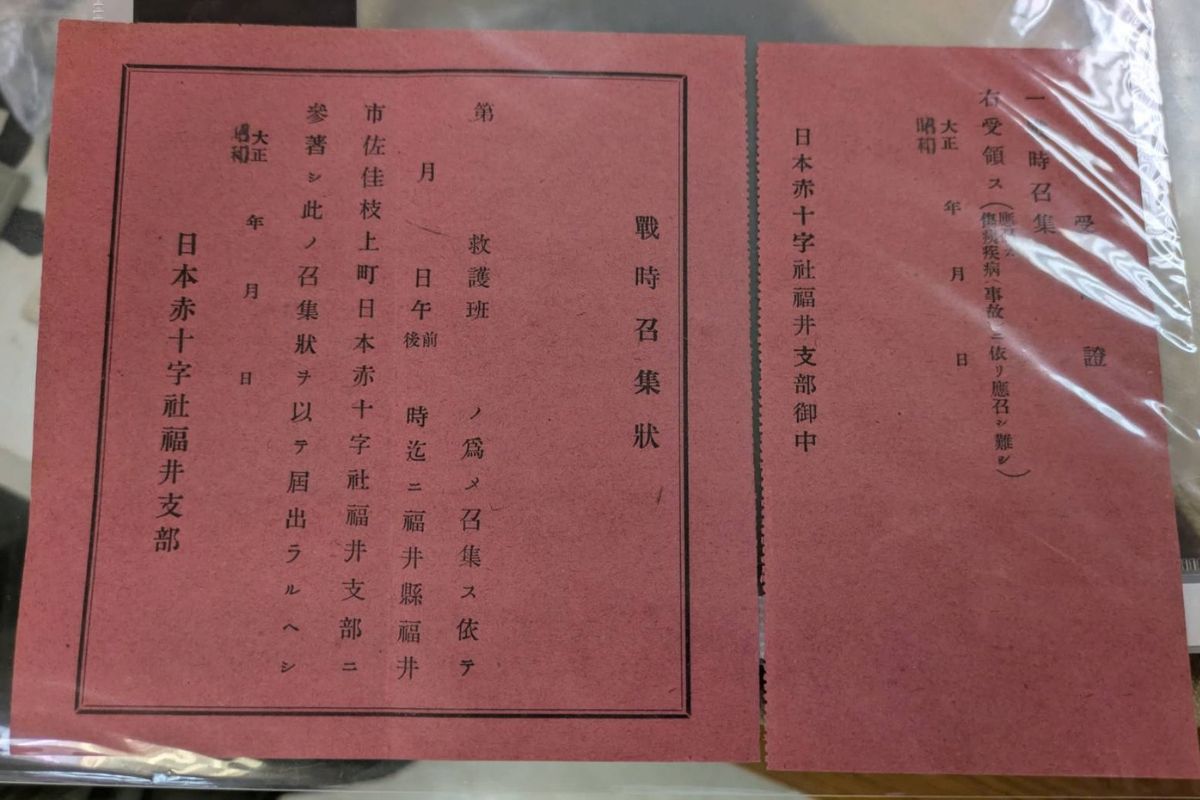 受 證
一 時召集
右受領ス(應召ス
傷痍疾病(事故)ニ依リ應召シ難シ)
大正
昭和 年 月 日
日本赤十字社福井支部御中
戰時召集狀
第 救護班 ノ爲メ召集ス依テ
月 日午前後 時迄ニ福井縣福井
市佐佳枝上町日本赤十字社福井支部ニ
參著シ此ノ召集狀ヲ以テ屆出ラルヘシ
大正
昭和 年 月 日
日本赤十字社福井支部